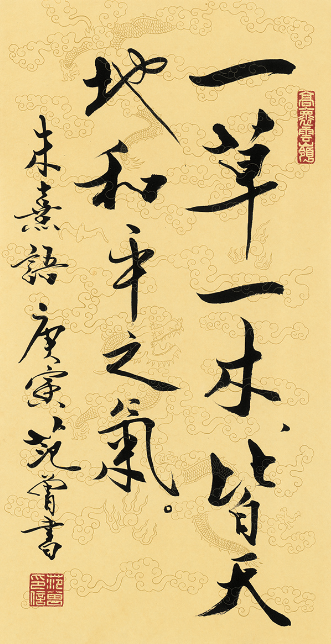 一草一木、皆天
地和平之氣。
朱熹語 庚寅 范曾書